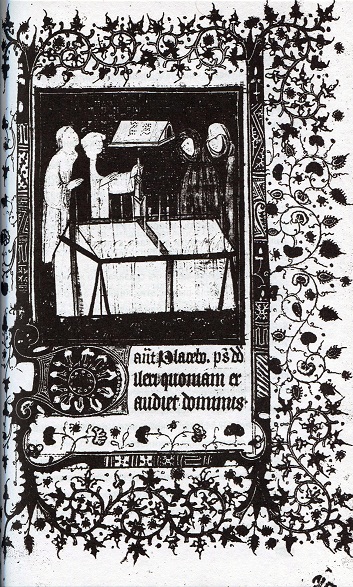 añt Placebo. ps dd
Dilexi quoniam ex
audiet dominus.